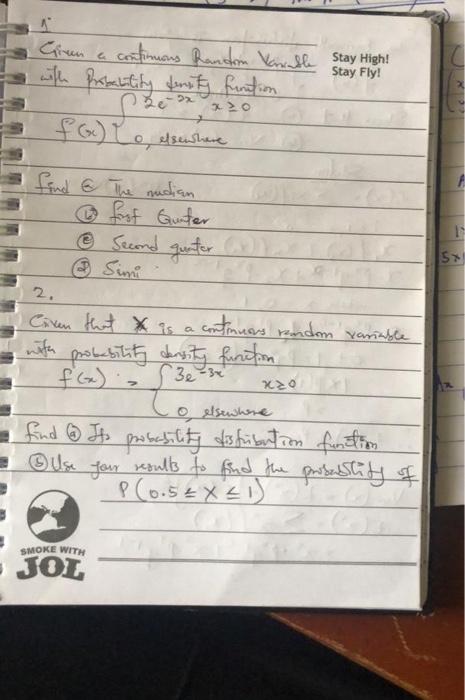 1.
Given a continuous Random Variable
Stay High!
Stay Fly!
with Probability density function
f(x) { 2e^-2x, x ≥ 0
0, elsewhere
find @ The median
(b) first Quater
(c) Second quater
(d) Simi
2.
Given that X is a continuous random variable
with probability density function
f(x) = { 3e^-3x x ≥ 0
0, elsewhere
find (a) Its probability distribution function
(b) Use your results to find the probability of
P(0.5 ≤ X ≤ 1)
SMOKE WITH
JOL